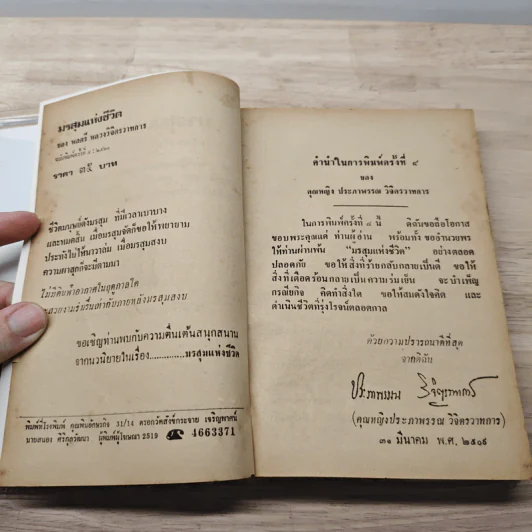 มรสุมแห่งชีวิต
ของ พลตรี หลวงวิจิตรวาทการ
ราคา ๓๕ บาท
ชีวิตมนุษย์ดั่งมรสุม ที่มีเวลาเบาบาง
และหมดสิ้น เมื่อมรสุมจัดก็ขอให้พยายาม
ประทังไปให้นาวาล่ม เมื่อมรสุมสงบ
ความผาสุกก็จะมีตามมา
ไม่มีดินฟ้าอากาศในฤดูกาลใด
จะสวยงามรื่นรื่นเท่ากับภายหลังมรสุมสงบ
ขอเชิญท่านพบกับความตื่นเต้นสนุกสนาน
จากนวนิยายในเรื่อง............มรสุมแห่งชีวิต
พิมพ์ที่โรงพิมพ์ 31/14 ตรอกวัดสังข์กระจาย เจริญพาศน์
นายสนอง ศิริกุลวัฒนา ผู้พิมพ์ผู้โฆษณา 2519 ☎ 4663371
คำนำในการพิมพ์ครั้งที่ ๙
ของ
คุณหญิง ประภาพรรณ วิจิตรวาทการ
ในการพิมพ์ครั้งที่ ๙ นี้ ดิฉันขอถือโอกาส
ขอบพระคุณแด่ ท่านผู้อ่าน พร้อมทั้ง ขออำนวยพร
ให้ท่านผ่านพ้น "มรสุมแห่งชีวิต" อย่างตลอด
ปลอดภัย ขอให้สิ่งที่ร้ายกลับกลายเป็นดี ขอให้
สิ่งที่เดือดร้อนกลายเป็นความร่มเย็น จะบำเพ็ญ
กรณียกิจ คิดทำสิ่งใด ขอให้สมดังใจคิด และ
ดำเนินชีวิตที่รุ่งโรจน์ตลอดกาล
ด้วยความปรารถนาดีที่สุด
จากดิฉัน
ประภาพรรณ วิจิตรวาทการ
(คุณหญิงประภาพรรณ วิจิตรวาทการ)
๓๑ มีนาคม พ.ศ. ๒๕๑๙